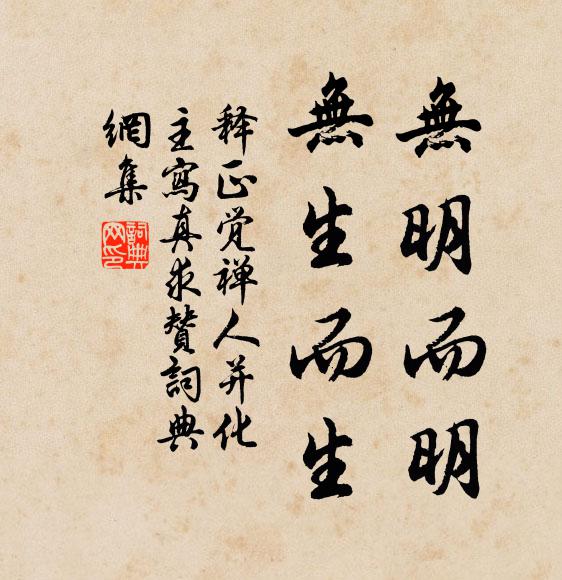 無明而明
無生而生
释正觉禅人并化
主寫真求贊詞典
網集
詞典网印